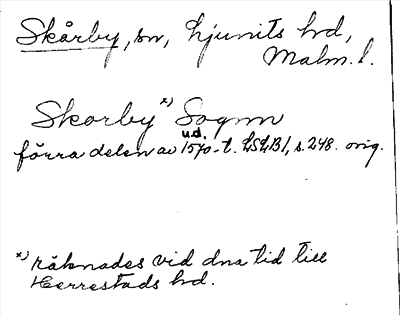 Skårby, sn, Ljunits hd,
Malm. l.
Skorby x) Sognn
u.d.
förra delen av 1570-t. LSLB1, s. 248. orig.
x) räknades vid dna tid till
Herrestads hd.